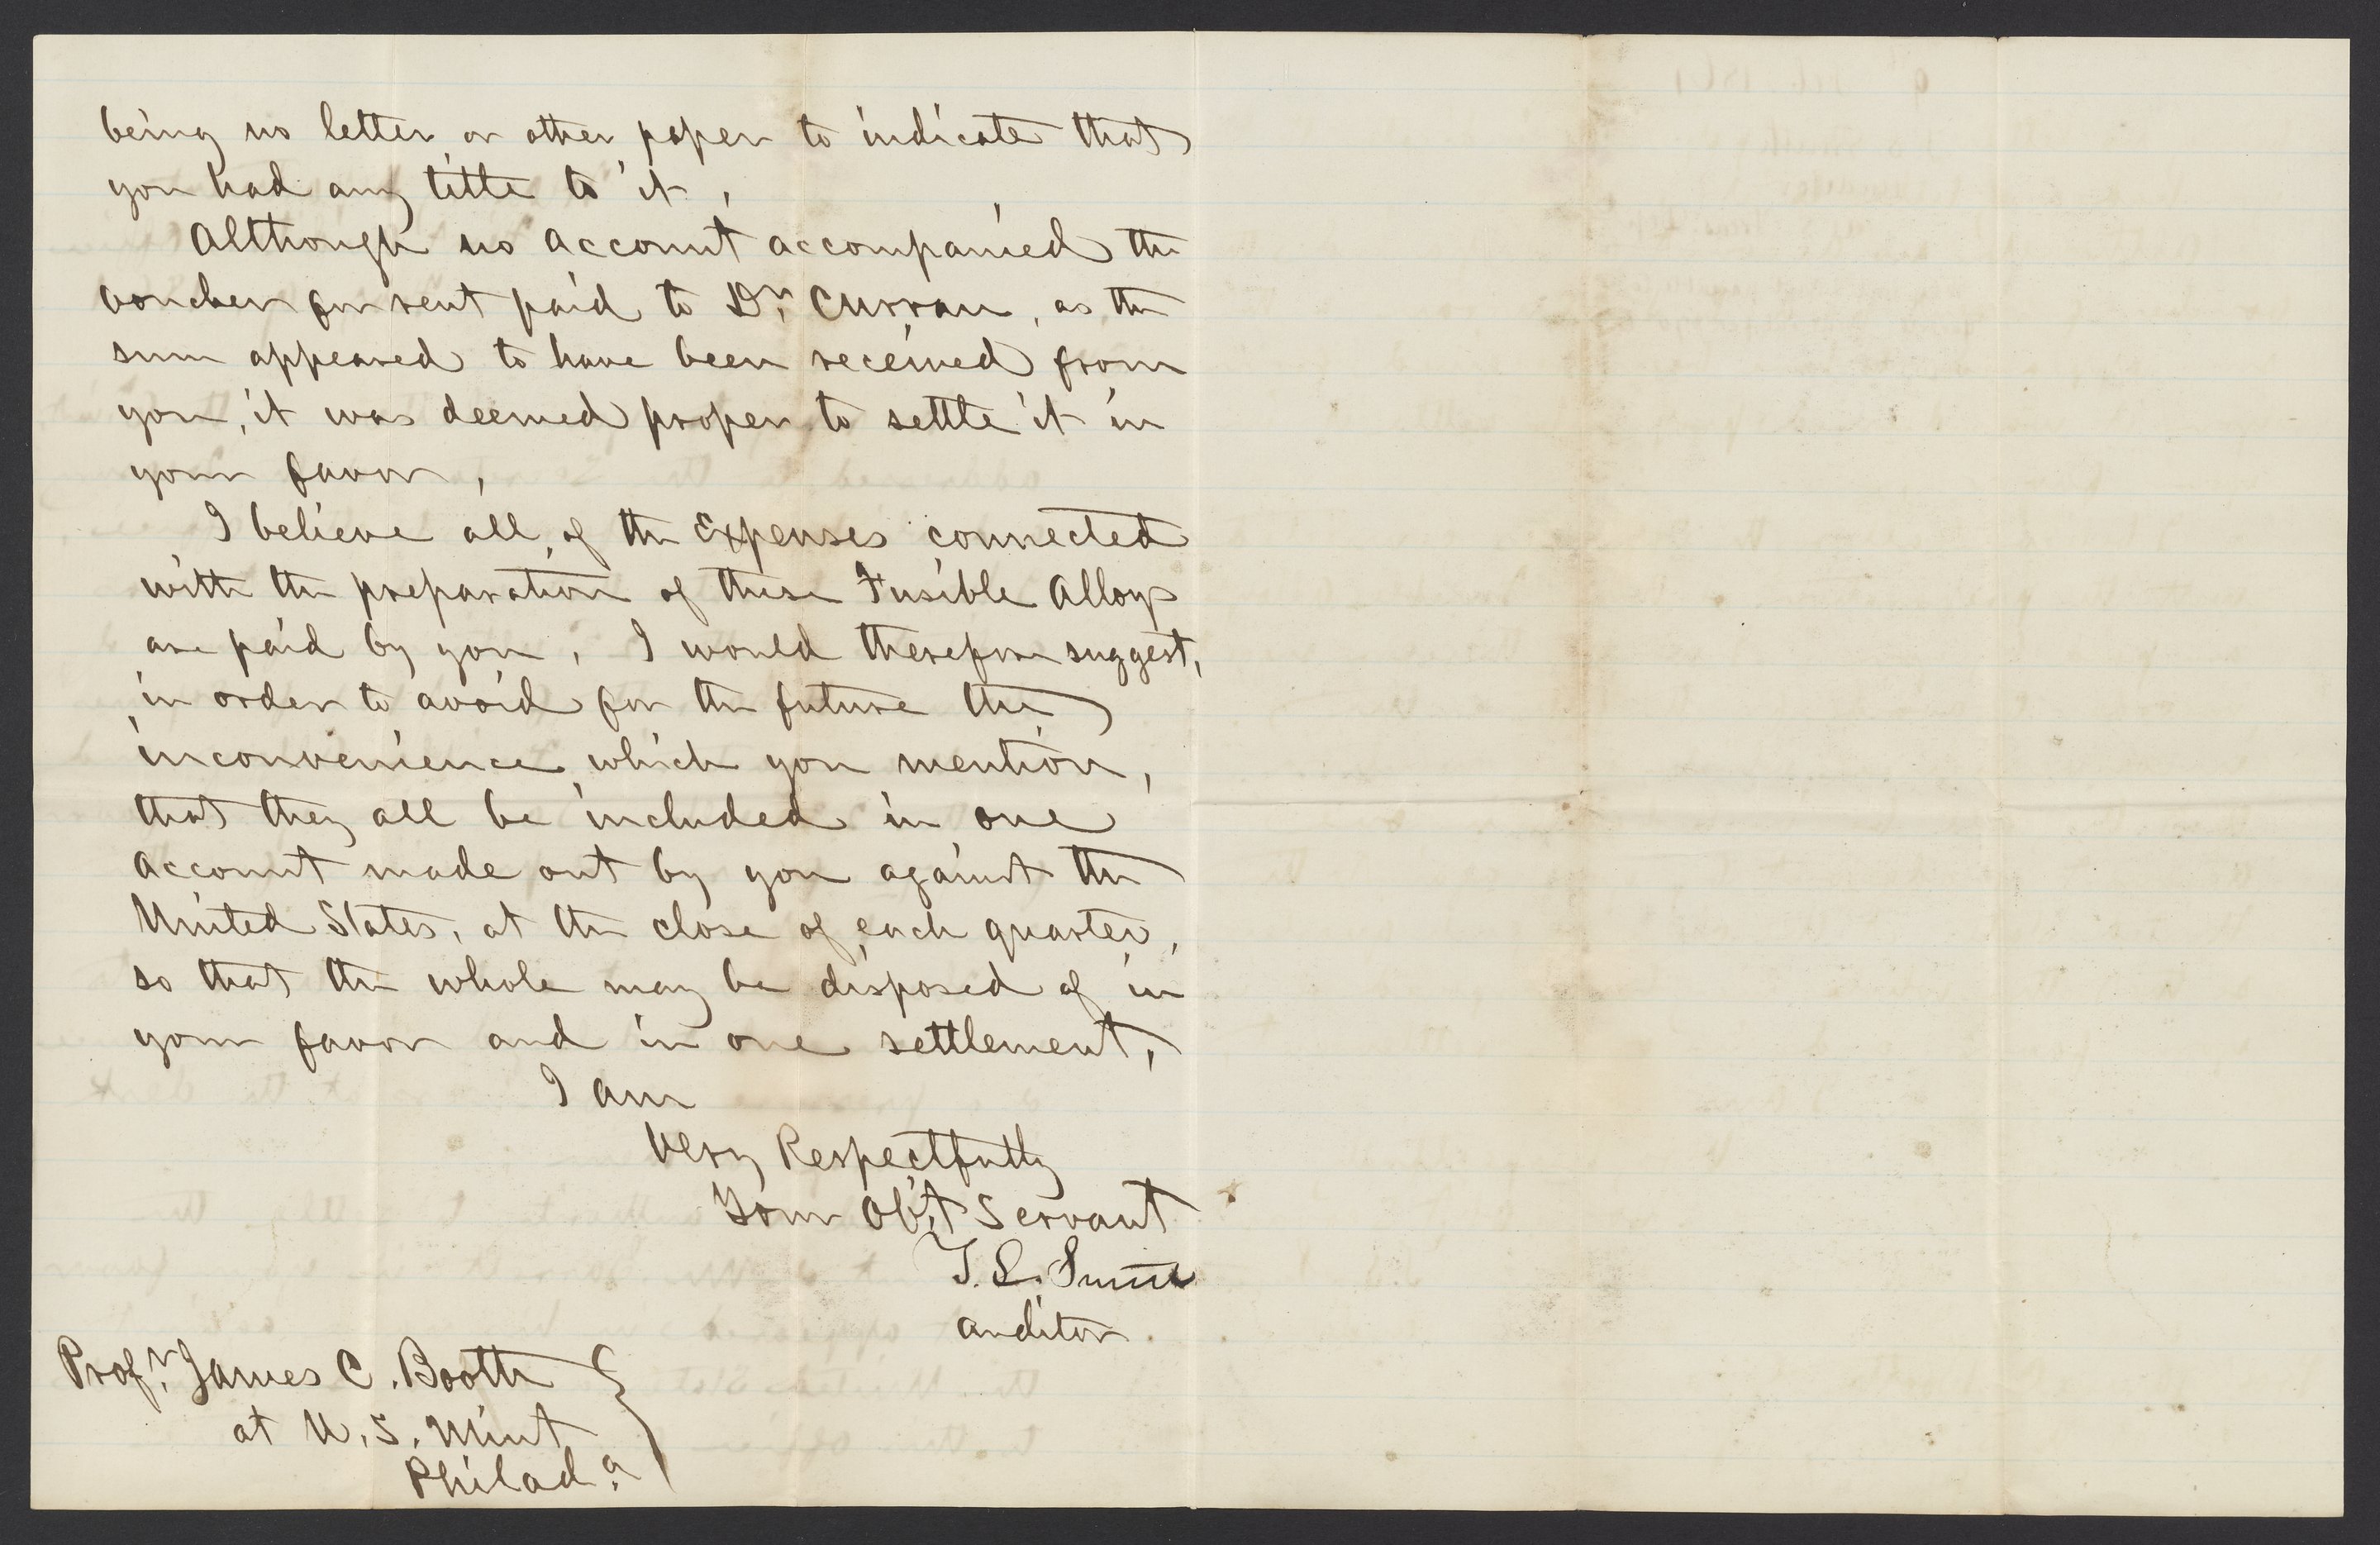 being no letter or other paper to indicate that
you had any title to it,
Although no account accompanied the
voucher for rent paid to Dr. Curran, as the
sum appeared to have been received from
you, it was deemed proper to settle it in
your favor,
I believe all of the Expenses connected
with the preparation of these Fusible Alloys
are paid by you, I would therefore suggest,
in order to avoid for the future the
inconvenience which you mention,
that they all be included in one
account made out by you against the
United States, at the close of each quarter,
so that the whole may be disposed of in
your favor and in one settlement,
I am
Very Respectfully
Your Ob't Servant
T. L. Smith
Auditor.
Profr. James C. Booth
at U.S. Mint
Philada.